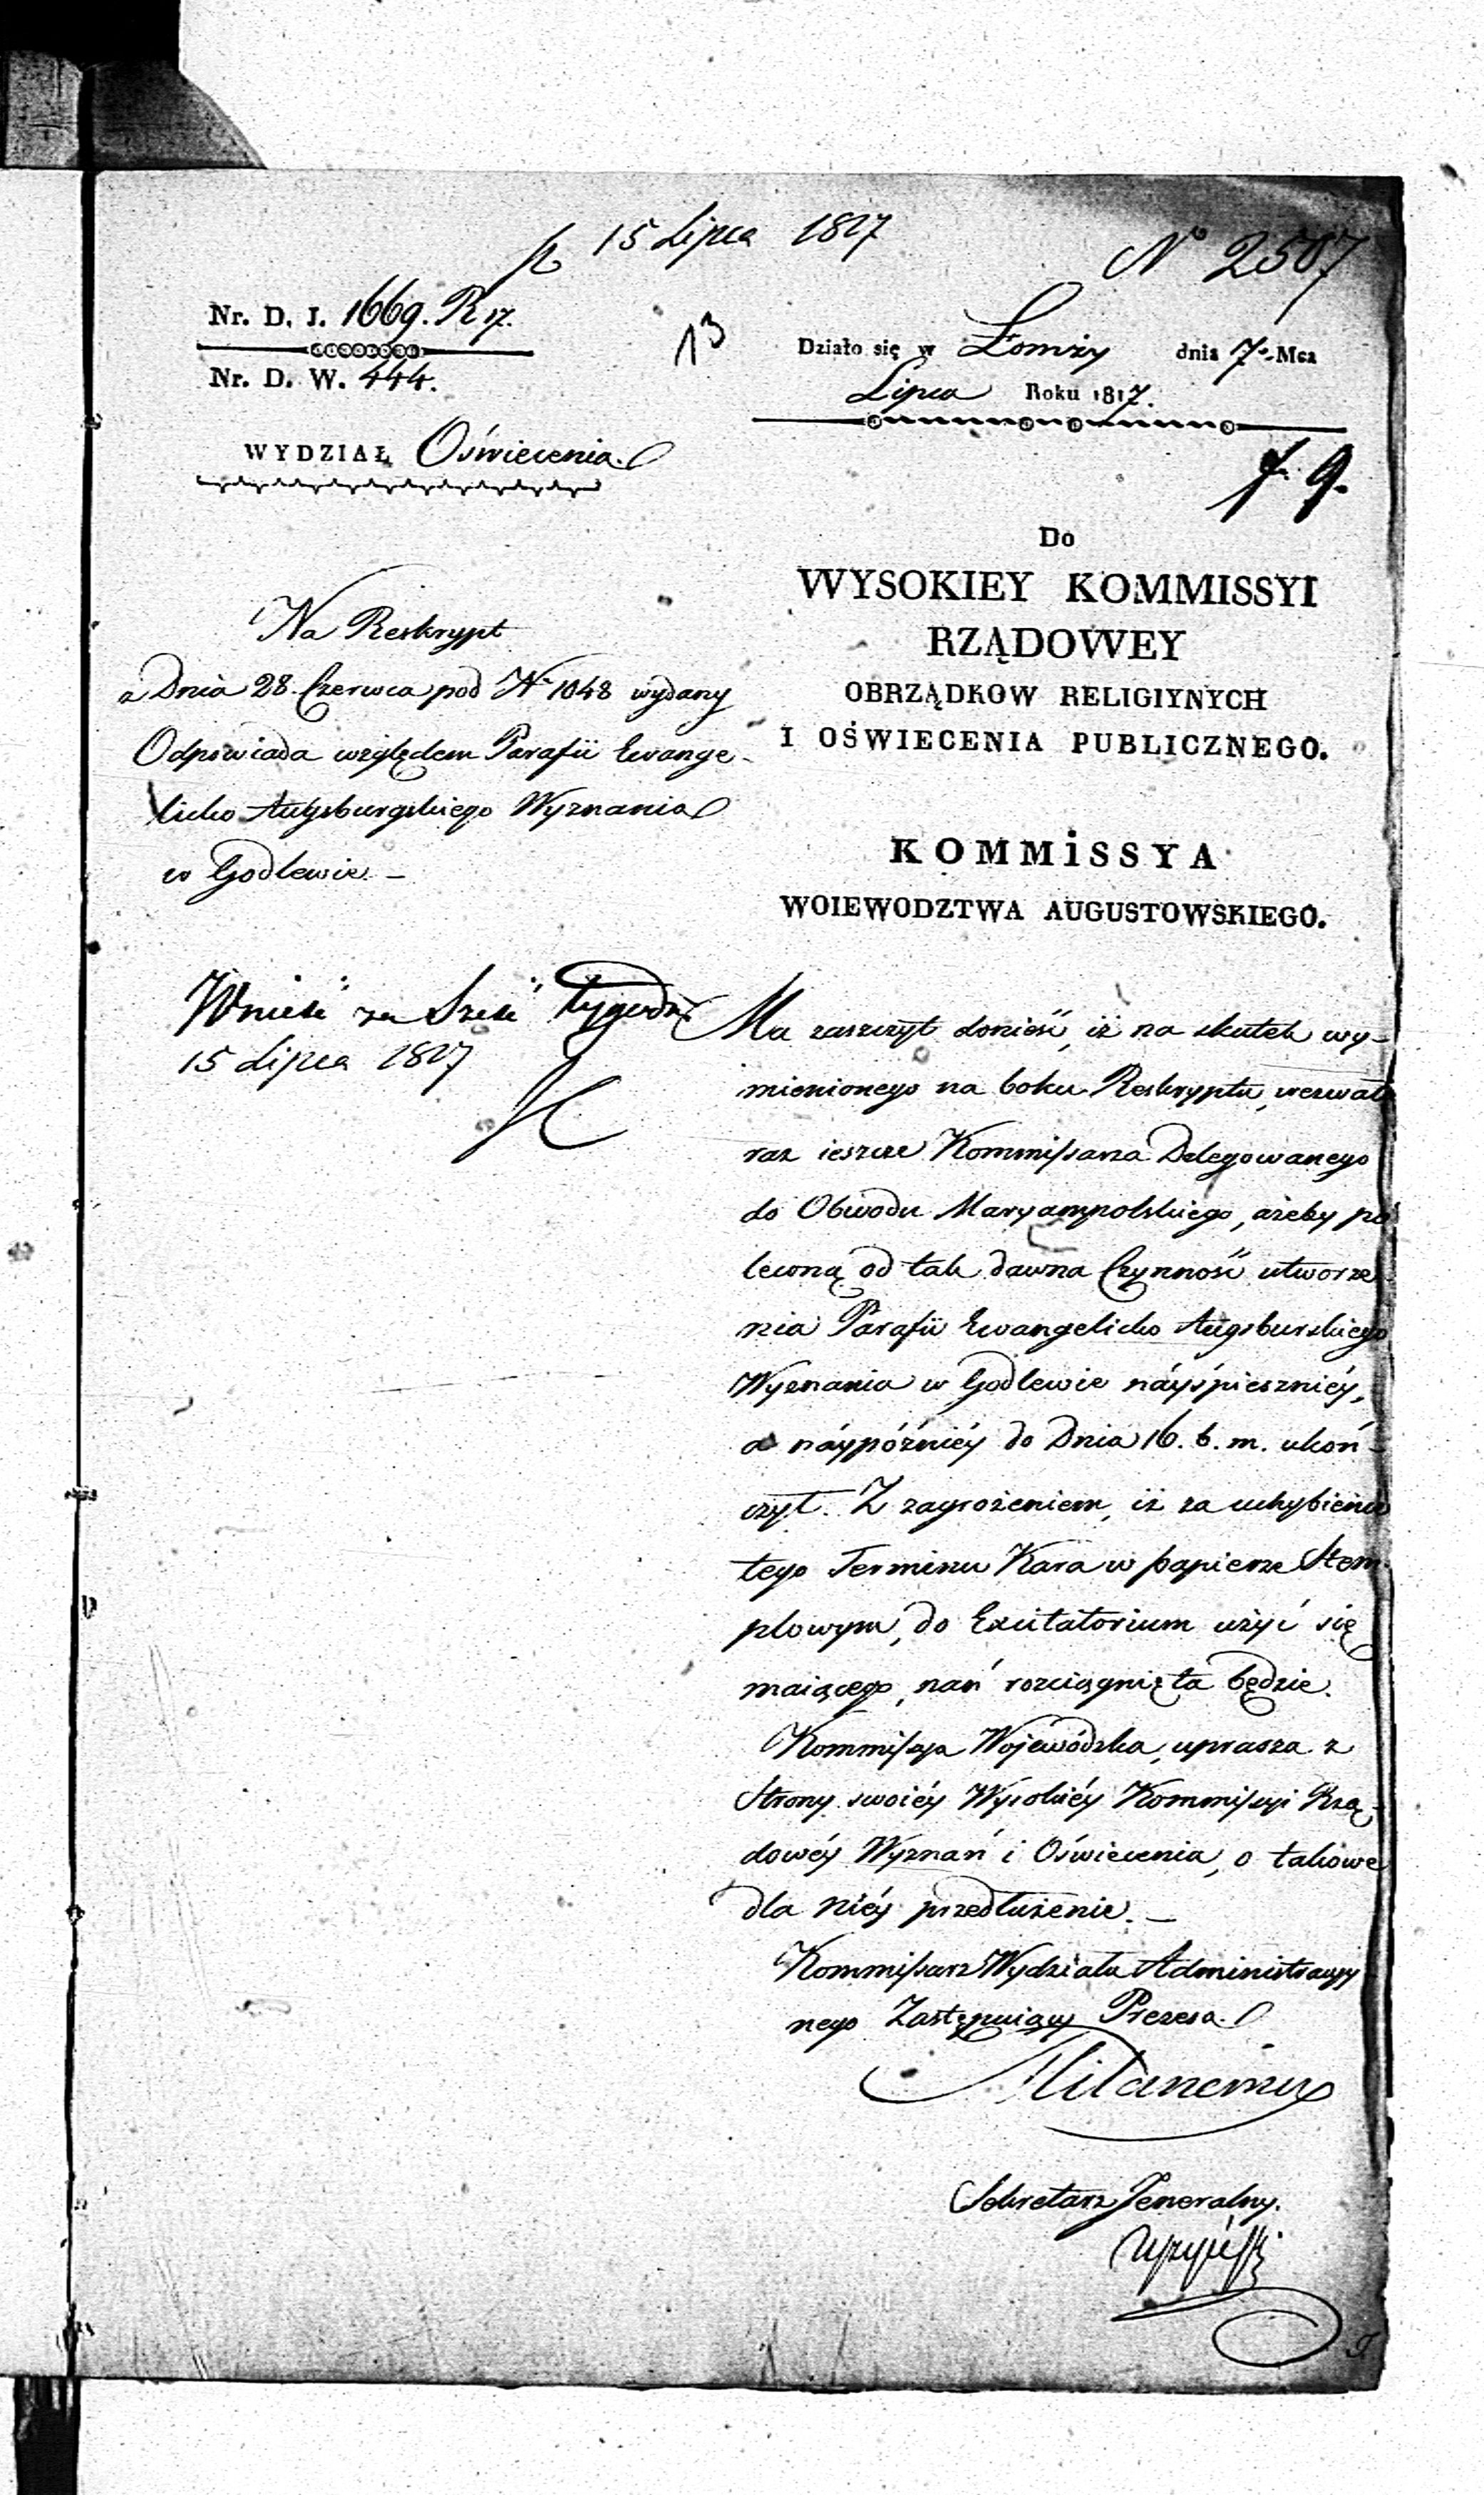 15 Lipca 1817
No 2507
Nr. D. I. 1669. R 17.
13
Działo się w Łomży dnia 7. Mca
Nr. D. W. 444.
Lipca Roku 1817.
WYDZIAŁ Oświecenia.
f. 9.
Do
WYSOKIEY KOMMISSYI
RZĄDOWEY
OBRZĄDKOW RELIGIYNYCH
I OŚWIECENIA PUBLICZNEGO.
Na Reskrypt
z Dnia 28. Czerwca pod No 1048 wydany
Odpowiada względem Parafii Ewange-
licko Augsburgskiego Wyznania
w Godlewie. –
KOMMISSYA
WOIEWODZTWA AUGUSTOWSKIEGO.
Wnieść za Sześć tygodni
15 Lipca 1817
Ma zaszczyt donieść, iż na skutek wy-
mienionego na boku Reskryptu, wezwała
raz ieszcze Kommissarza Delegowanego
do Obwodu Maryampolskiego, ażeby po
leconą od tak dawna Czynność utworze-
nia Parafii Ewangelicko Augsburskiego
Wyznania w Godlewie náyśpieszniéy,
a náypóźniéy do Dnia 16. b. m. ukoń-
czył. Z zagrożeniem, iż za uchybieniu
tego Terminu Kara w papierze Stem-
plowym, do Excitatorium użyć się
maiącego, nań rozciągnięta będzie.
Kommissya Wojewódzka, uprasza z
Strony swoiéy Wysokiéy Kommissyi Rzą-
dowéy Wyznań i Oświecenia, o takowe
dla niéy przedłużenie. –
Kommissarz Wydziału Administracyy
nego Zastępuiący Prezesa.
Sekretarz Jeneralny.